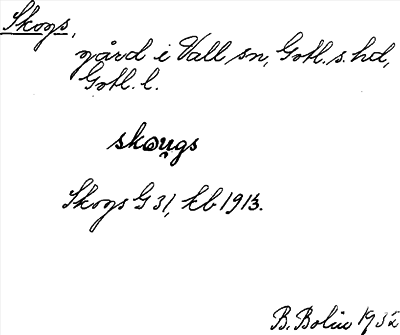 Skogs,
gård i Vall sn, Gotl. s. hd,
Gotl. l.
skougs
Skogs G 31, kb 1913.
B. Bolin 1932